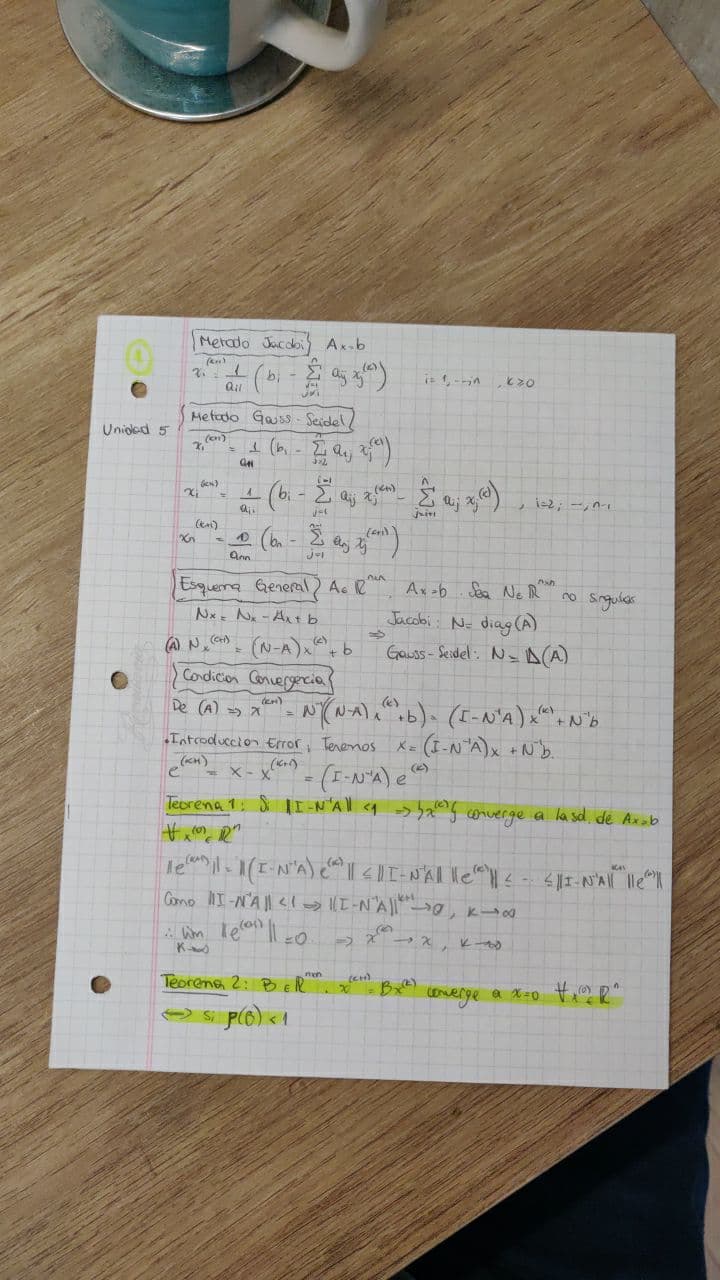 1
Metodo Jacobi Ax=b
xᵢ^(k+1) = 1/aᵢᵢ (bᵢ - Σ_{j=1, j≠i}^{n} aᵢⱼ xⱼ^(k)) i=1,--,n , k≥0
Unidad 5
Metodo Gauss-Seidel
x₁^(k+1) = 1/a₁₁ (b₁ - Σ_{j=2}^{n} a₁ⱼ xⱼ^(k))
xᵢ^(k+1) = 1/aᵢᵢ (bᵢ - Σ_{j=1}^{i-1} aᵢⱼ xⱼ^(k+1) - Σ_{j=i+1}^{n} aᵢⱼ xⱼ^(k)) , i=2, --, n-1
xₙ^(k+1) = 1/aₙₙ (bₙ - Σ_{j=1}^{n-1} aₙⱼ xⱼ^(k+1))
Esquema General A∈ℝ^{n×n}, Ax=b. Sea N∈ℝ^{n×n} no singular
Nx = Nx - Ax + b
Jacobi: N= diag(A)
(A) Nx^(k+1) = (N-A)x^(k) + b ⇒ Gauss-Seidel: N= (A)
Condicion Convergencia
De (A) ⇒ x^(k+1) = N⁻¹((N-A)x^(k)+b) = (I-N⁻¹A)x^(k) + N⁻¹b
.Introduccion Error, Tenemos x=(I-N⁻¹A)x + N⁻¹b.
e^(k+1) = x - x^(k+1) = (I-N⁻¹A) e^(k)
Teorema 1: Si ‖I-N⁻¹A‖ <1 ⇒ {x^(k)} converge a la sol. de Ax=b
∀x^(0)∈ℝⁿ
‖e^(k+1)‖ = ‖(I-N⁻¹A)e^(k)‖ ≤ ‖I-N⁻¹A‖ ‖e^(k)‖ ≤ -- ≤ ‖I-N⁻¹A‖^{k+1} ‖e^(0)‖
Como ‖I-N⁻¹A‖<1 ⇒ ‖I-N⁻¹A‖^{k+1} → 0, k→∞
∴ lim_{k→∞} ‖e^(k+1)‖ =0 ⇒ x^(k) → x, k→∞
Teorema 2: B∈ℝ^{n×n}. x^(k+1) = Bx^(k) converge a x=0 ∀x^(0)∈ℝⁿ
⟺ Si ρ(B)<1